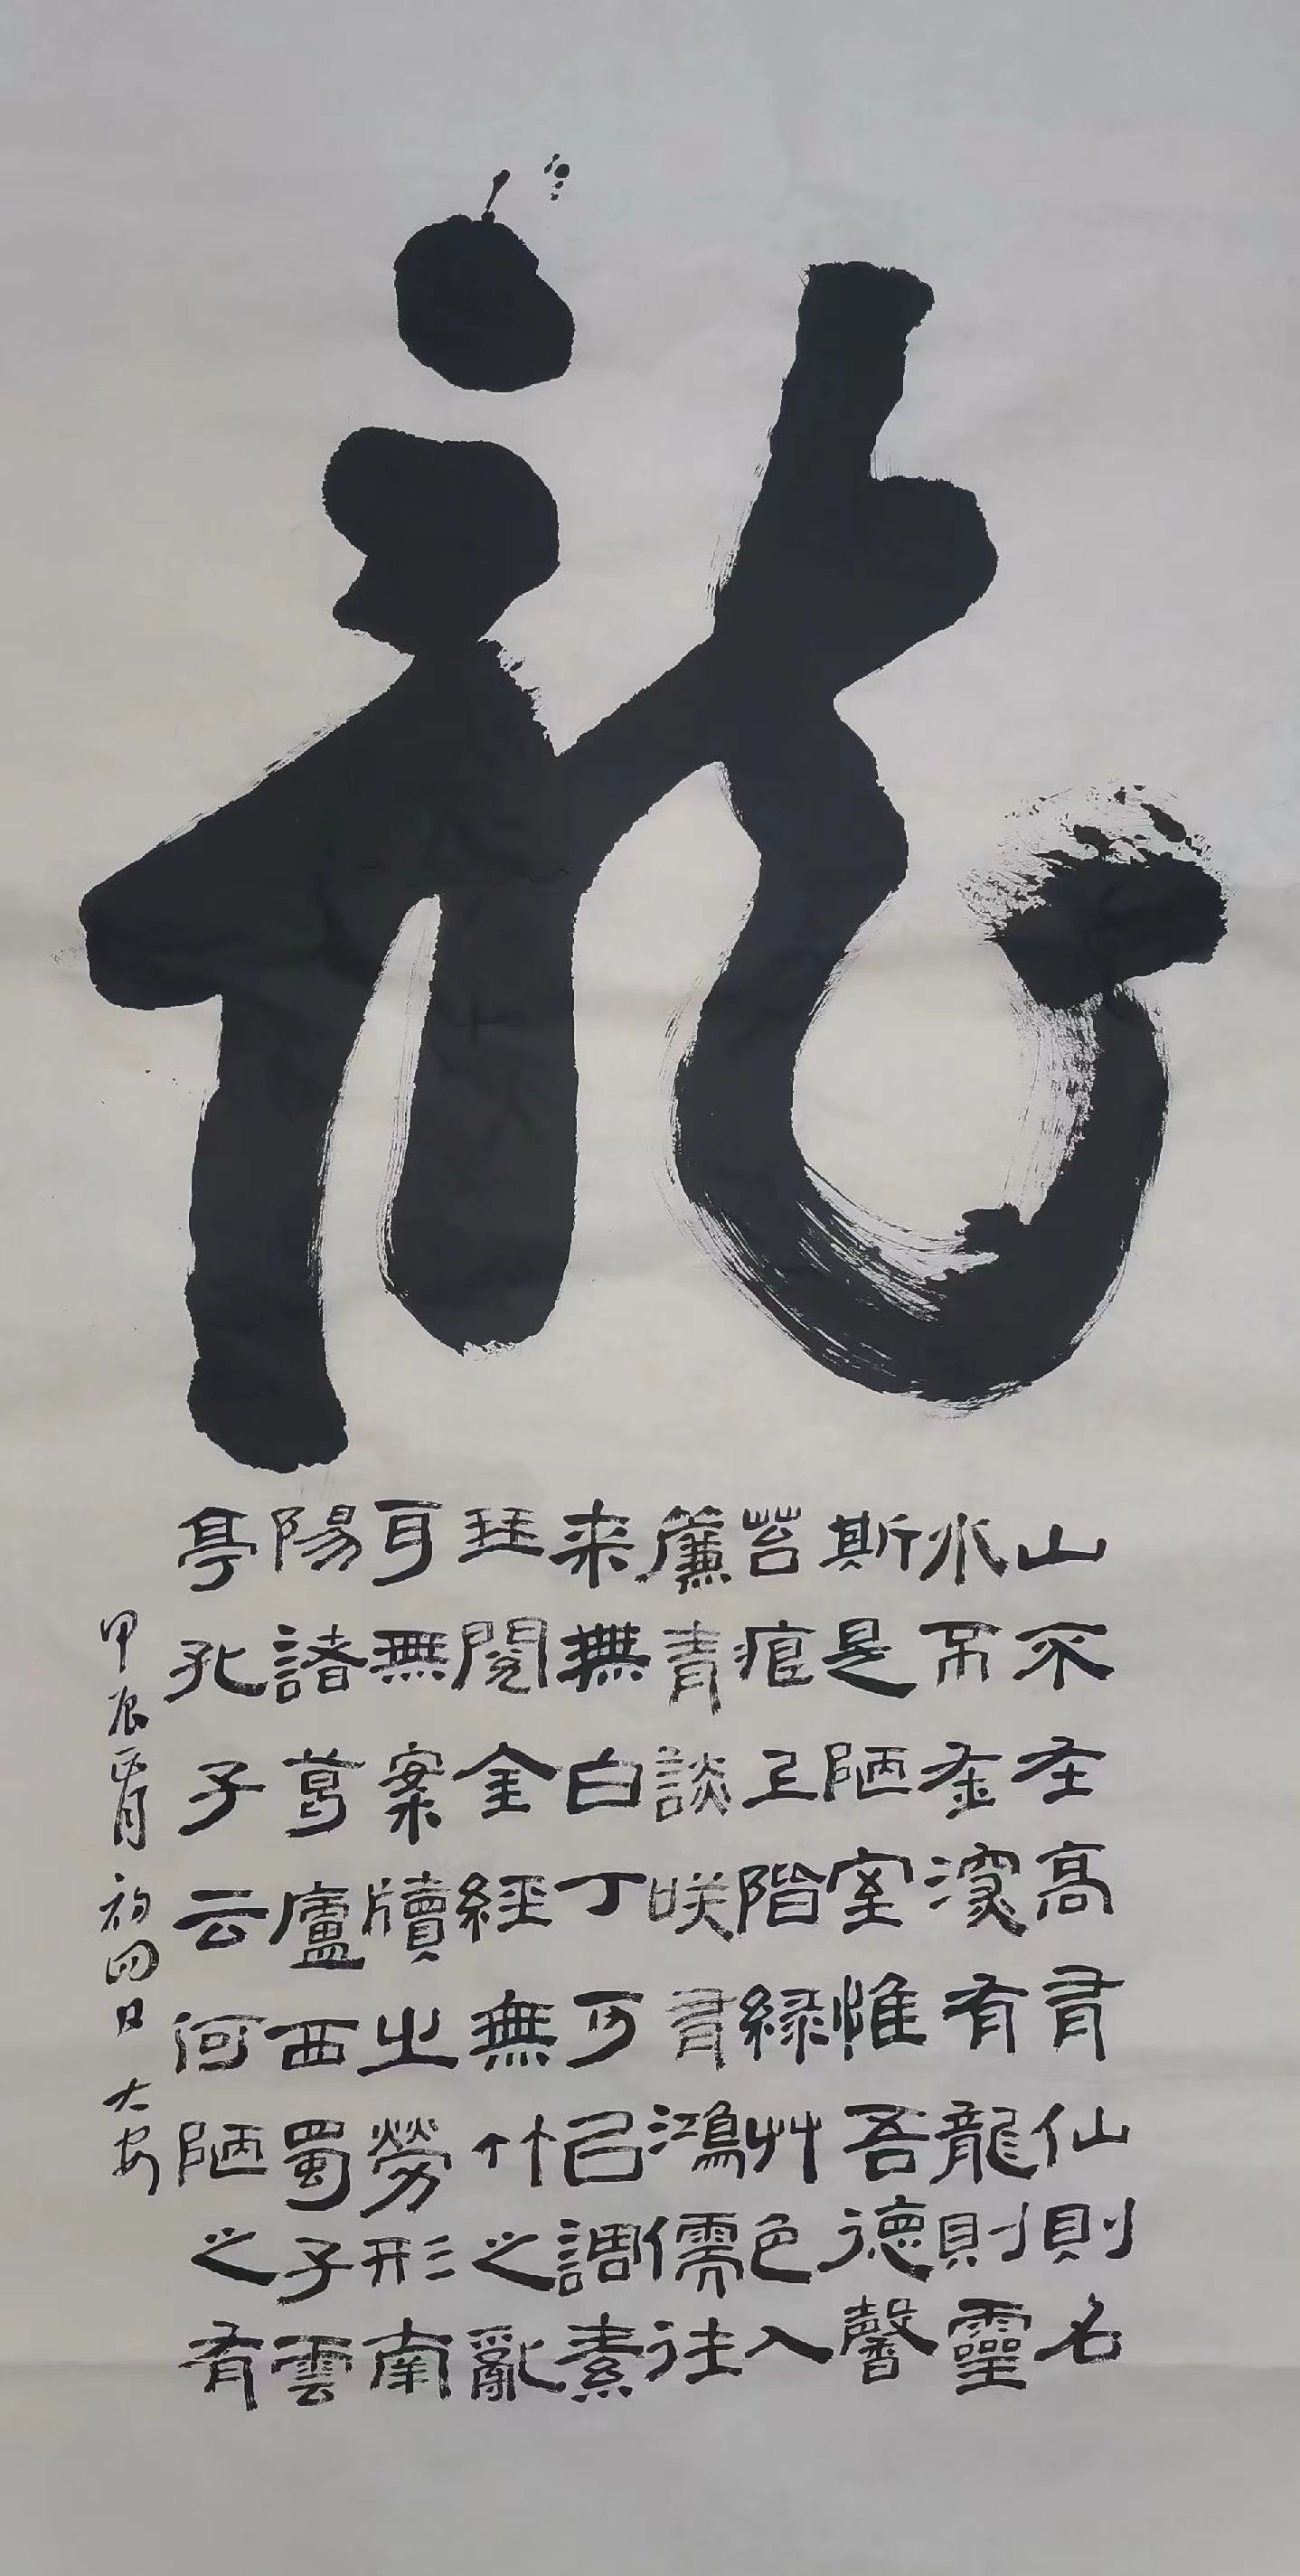 龍
山不在高有仙則名
水不在深有龍則靈
斯是陋室惟吾德馨
苔痕上階緑艸色入
簾青談咲有鴻儒往
来無白丁可㠯調素
珡閱金經無竹之亂
耳無案牘之勞形南
陽諸葛廬西蜀子雲
亭孔子云何陋之有
甲辰正月初四日大安